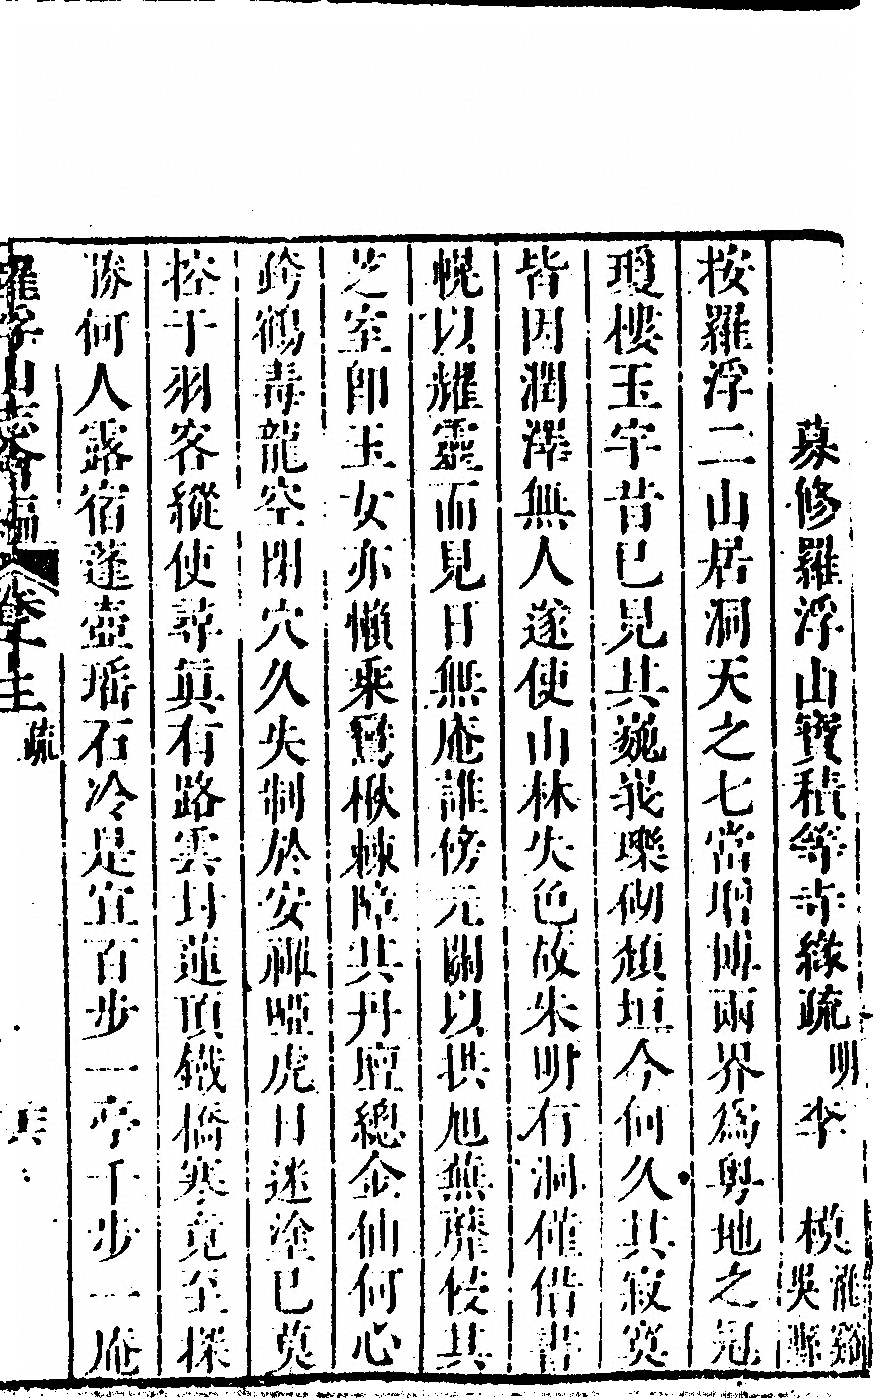 募修羅浮山寶積等寺緣疏 明李 模
按羅浮二山居洞天之七當增博兩界為粵地之冠
瓊樓玉宇昔已見其巍峩礫砌頹垣今何久其寂寞
皆因潤澤無人遂使山林失色故朱明有洞僅借書
幌以耀靈而見日無庵誰傍元關以拱旭蕪薜侵其
芝室即玉女亦懶乘鸞楸棘障共丹壇總金仙何心
跨鶴毒龍空閉穴久失制於安禪啞虎日迷塗已莫
控于羽客縱使尋真有路雲封蓮頂鐵橋寒竟至探
勝何人露宿蓬壺瑤石冷是宜百步一亭千步一庵
羅浮山志會編 卷十三 疏